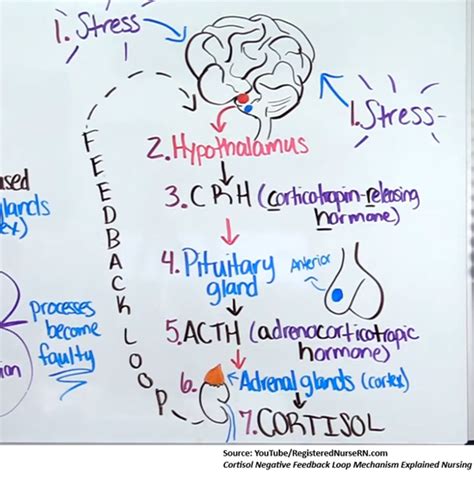 1. Stress
1. Stress-
2. Hypothalamus
3. CRH (corticotropin-releasing
hormone)
4. Pituitary
gland
Anterior
5. ACTH (adrenocorticotropic
hormone)
6. Adrenal glands (cortex)
7. CORTISOL
FEEDBACK LOOP
used
lands
ex)
processes
become
faulty
ion
Source: YouTube/RegisteredNurseRN.com
Cortisol Negative Feedback Loop Mechanism Explained Nursing